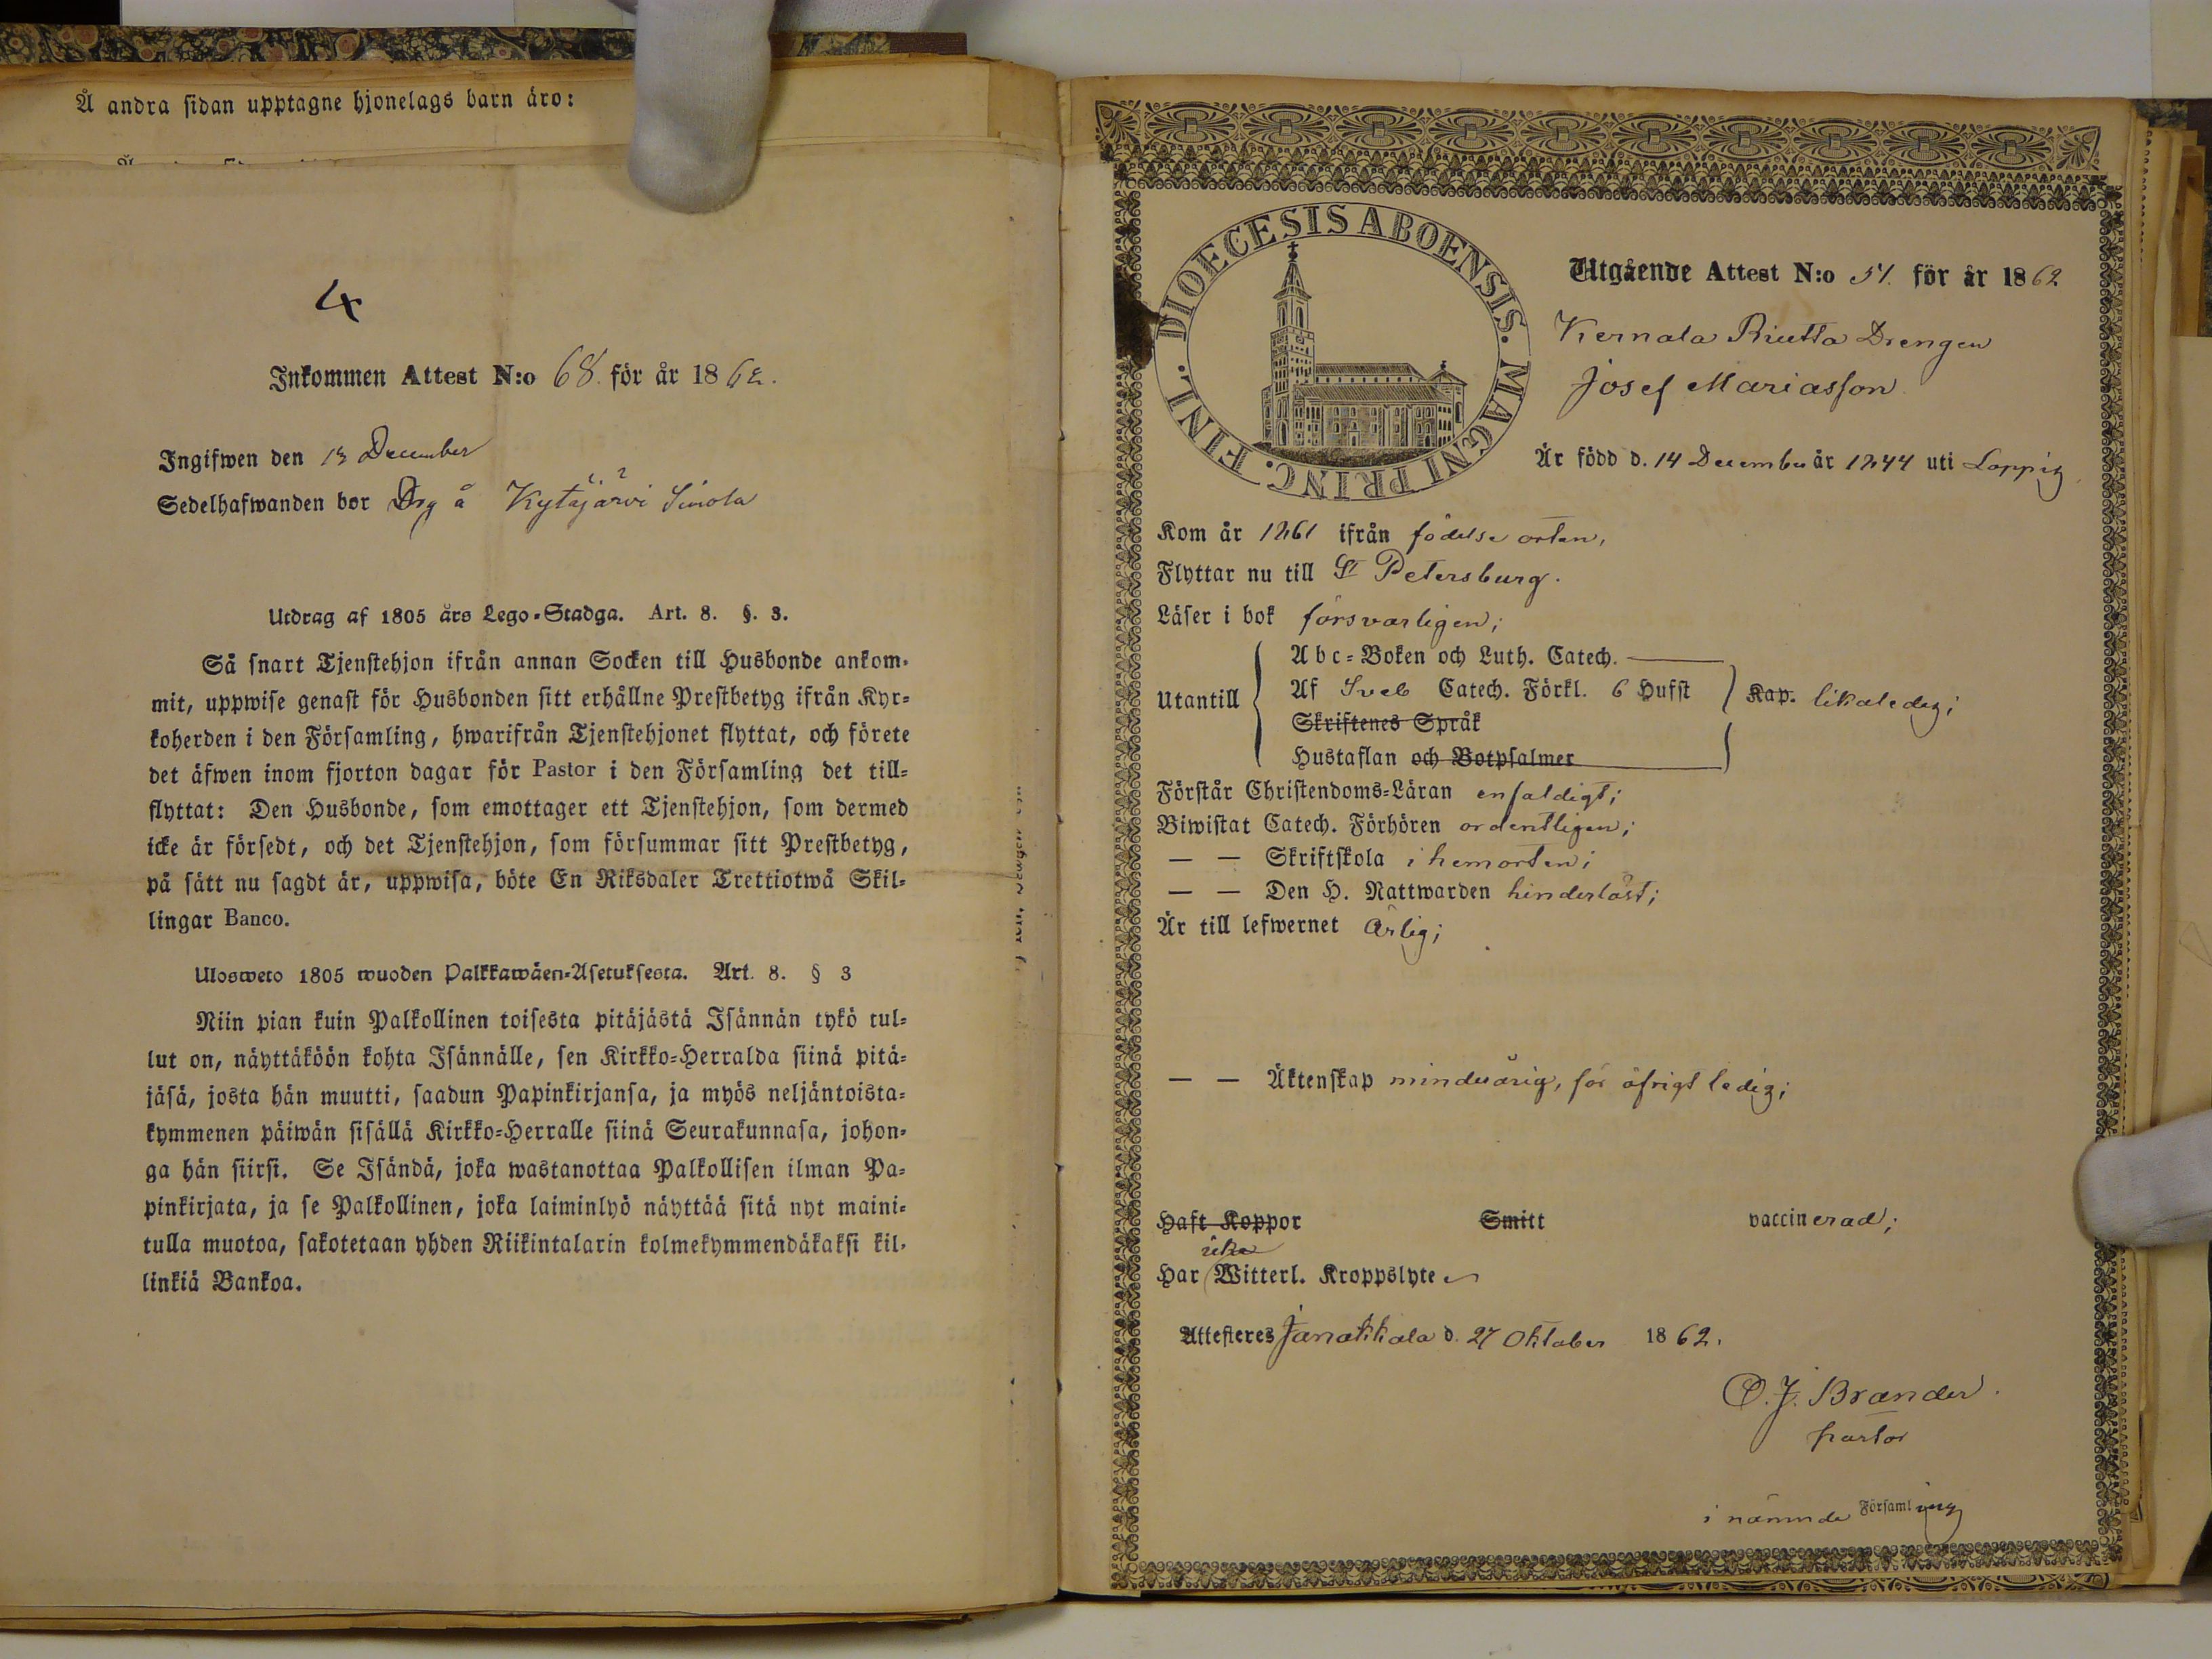 Å andra sidan upptagne hjonelags barn äro:
4
Inkommen Attest N:o 68. för år 1862.
Ingifwen den 13 December
Sedelhafwanden bor Drg å Kytäjärvi Sinola
Utdrag af 1805 års Lego-Stadga. Art. 8. §. 3.
Så snart Tjenstehjon ifrån annan Socken till Husbonde ankom-
mit, uppwise genast för Husbonden sitt erhållne Prestbetyg ifrån Kyr-
koherden i den Församling, hwarifrån Tjenstehjonet flyttat, och förete
det äfwen inom fjorton dagar för Pastor i den Församling det till-
flyttat: Den Husbonde, som emottager ett Tjenstehjon, som dermed
icke är försedt, och det Tjenstehjon, som försummar sitt Prestbetyg,
på sätt nu sagdt är, uppwisa, böte En Riksdaler Trettiotwå Skil-
lingar Banco.
Ulosweto 1805 wuoden Palkkawäen-Asetuksesta. Art. 8. § 3
Niin pian kuin Palkollinen toisesta pitäjästä Isännän tykö tul-
lut on, näyttäköön kohta Isännälle, sen Kirkko-Herralda siinä pitä-
jäsä, josta hän muutti, saadun Papinkirjansa, ja myös neljäntoista-
kymmenen päiwän sisällä Kirkko-Herralle siinä Seurakunnasa, johon-
ga hän siirsi. Se Isändä, joka wastanottaa Palkollisen ilman Pa-
pinkirjata, ja se Palkollinen, joka laiminlyö näyttää sitä nyt maini-
tulla muotoa, sakotetaan yhden Riikintalarin kolmekymmendäkaksi kil-
linkiä Bankoa.
DIOECESIS ABOENSIS. MAGNI PRINC. FINL.
Utgående Attest N:o 51. för år 1862
Kernala Riutta Drengen
Josef Mariasson
Är född d. 14 December år 1844 uti Loppis
Kom år 1861 ifrån födelse orten,
Flyttar nu till St Petersburg.
Läser i bok försvarligen;
Abc-Boken och Luth. Catech.
Utantill Af Sveb Catech. Förkl. 6 Hufst Kap. likaledes;
Skriftenes Språk
Hustaflan och Botpsalmer
Förstår Christendoms-Läran enfaldigt;
Biwistat Catech. Förhören ordentligen;
— — Skriftskola i hemorten;
— — Den H. Nattwarden hinderlöst;
Är till lefwernet ärlig;
— — Äktenskap minderårig, för öfrigt ledig;
Haft Koppor Smitt vaccinerad;
icke
Har Witterl. Kroppslyte
Attesteres Janakkala d. 27 Oktober 1862.
O. J. Brander.
pastor
i nämnde Församling